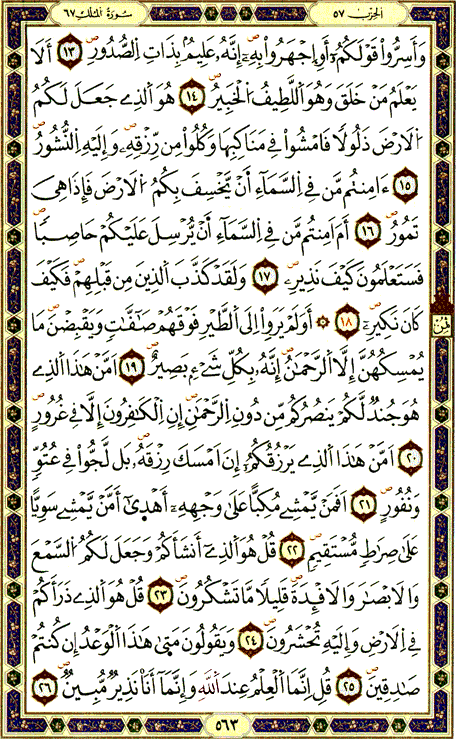 الحزب ٥٧
سورة الملك ٦٧
وَأَسِرُّوا۟ قَوْلَكُمُۥٓ أَوِ اِ۪جْهَرُوا۟ بِهِۦٓۖ إِنَّهُۥ عَلِيمُۢ بِذَاتِ اِ۬لصُّدُورِۖ ١٣ أَلَا
يَعْلَمُ مَنْ خَلَقَ وَهُوَ اَ۬للَّطِيفُ اُ۬لْخَبِيرُۖ ١٤ هُوَ اَ۬لذِے جَعَلَ لَكُمُ
اُ۬لَارْضَ ذَلُولاٗ فَامْشُوا۟ فِے مَنَاكِبِهَا وَكُلُوا۟ مِن رِّزْقِهِۦۖ وَإِلَيْهِ اِ۬لنُّشُورُۖ
١٥ ءَا۬مِنتُم مَّن فِے اِ۬لسَّمَآءِ اَنْ يَّخْسِفَ بِكُمُ اُ۬لَارْضَ فَإِذَا هِيَ
تَمُورُۖ ١٦ أَمَ اَمِنتُم مَّن فِے اِ۬لسَّمَآءِ اَنْ يُّرْسِلَ عَلَيْكُمْ حَاصِباٗۖ
فَسَتَعْلَمُونَ كَيْفَ نَذِيرِۦۖ ١٧ وَلَقَدْ كَذَّبَ اَ۬لذِينَ مِن قَبْلِهِمْ فَكَيْفَ
كَانَ نَكِيرِۦٓۖ ١٨ ۞ أَوَلَمْ يَرَوِا۟ اِلَى اَ۬لطَّيْرِ فَوْقَهُمْ صَٰٓفَّٰتٖ وَيَقْبِضْنَۖ مَا
يُمْسِكُهُنَّ إِلَّا اَ۬لرَّحْمَٰنُۖ إِنَّهُۥ بِكُلِّ شَےْءِۢ بَصِيرٌۖ ١٩ اَمَّنْ هَٰذَا اَ۬لذِے
هُوَ جُندٞ لَّكُمْ يَنصُرُكُم مِّن دُونِ اِ۬لرَّحْمَٰنِۖ إِنِ اِ۬لْكَٰفِرُونَ إِلَّا فِے غُرُورٍۖ
٢٠ اَمَّنْ هَٰذَا اَ۬لذِے يَرْزُقُكُمُۥٓ إِنَ اَمْسَكَ رِزْقَهُۥۖ بَل لَّجُّوا۟ فِے عُتُوّٖ
وَنُفُورٍۖ ٢١ اَفَمَنْ يَّمْشِے مُكِبّاً عَلَىٰ وَجْهِهِۦٓ أَهْد۪ىٰٓ أَمَّنْ يَّمْشِے سَوِيّاً
عَلَىٰ صِرَٰطٖ مُّسْتَقِيمٖۖ ٢٢ قُلْ هُوَ اَ۬لذِےٓ أَنشَأَكُمْ وَجَعَلَ لَكُمُ اُ۬لسَّمْعَ
وَالَابْصَٰرَ وَالَافْـِٕدَةَۖ قَلِيلاٗ مَّا تَشْكُرُونَۖ ٢٣ قُلْ هُوَ اَ۬لذِے ذَرَأَكُمْ
فِے اِ۬لَارْضِ وَإِلَيْهِ تُحْشَرُونَۖ ٢٤ وَيَقُولُونَ مَت۪ىٰ هَٰذَا اَ۬لْوَعْدُ إِن كُنتُمْ
صَٰدِقِينَۖ ٢٥ قُلِ اِنَّمَا اَ۬لْعِلْمُ عِندَ اَ۬للَّهِ وَإِنَّمَآ أَنَا نَذِيرٞ مُّبِينٞۖ ٢٦
ثمن
٥٦٣